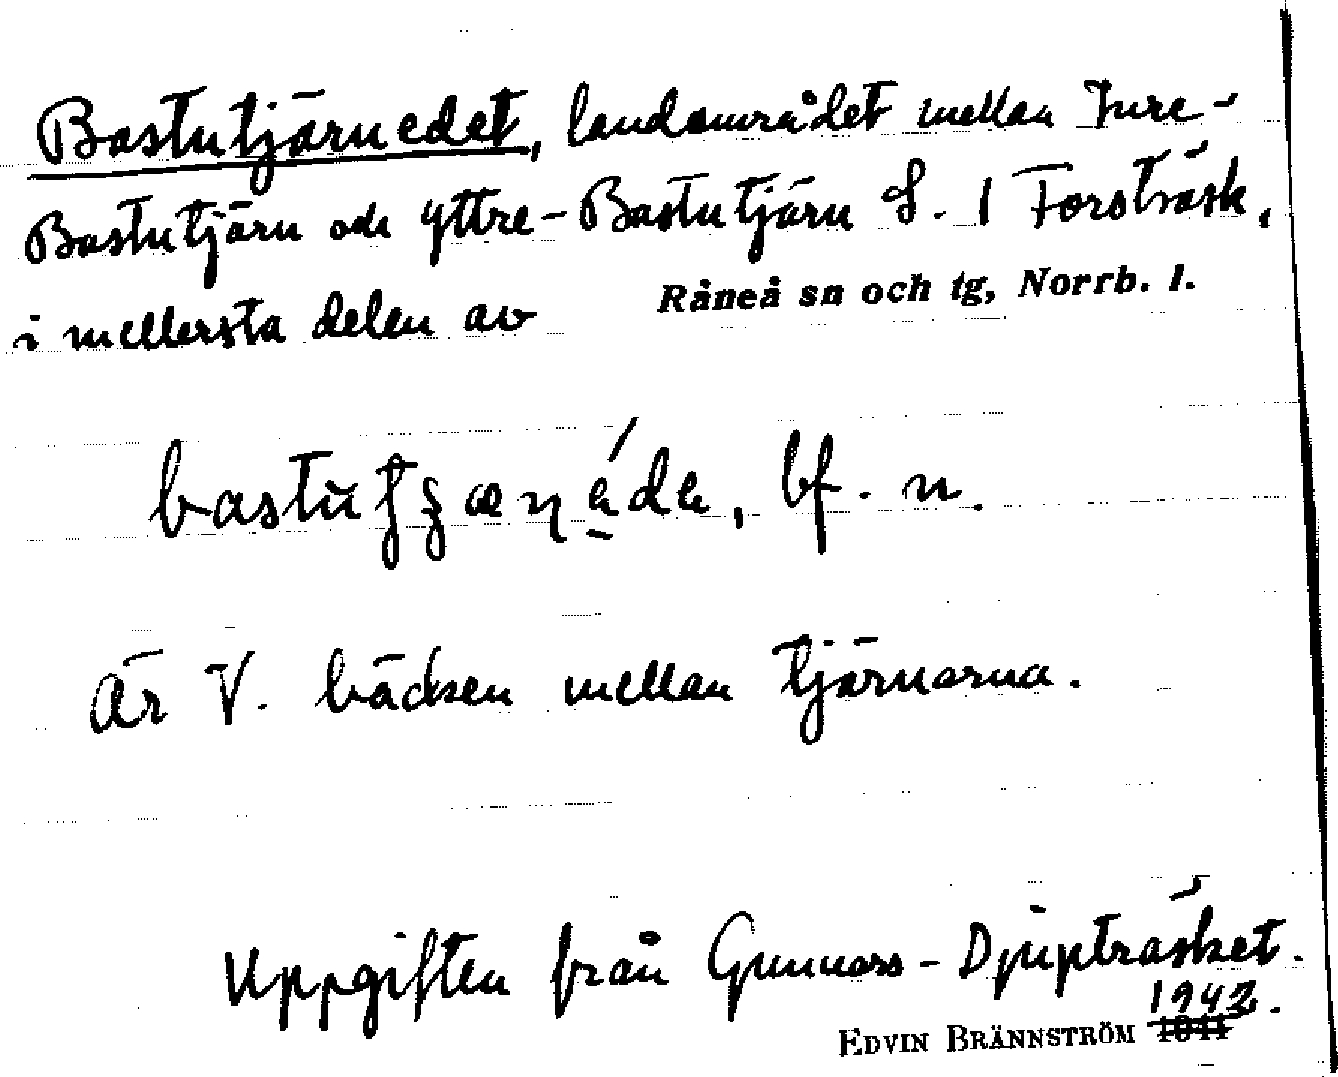 Bastutjärnedet, landområdet mellan Jure-
Bastutjärn och Yttre-Bastutjärn S. l Forsträsk,
i mellersta delen av Råneå sn och tg, Norrb. l.
bf. n.
är V. bäcken mellan tjärnarna.
Uppgiften från Gunnars-Djupträsket.
1942.
EDVIN BRÄNNSTRÖM 1941